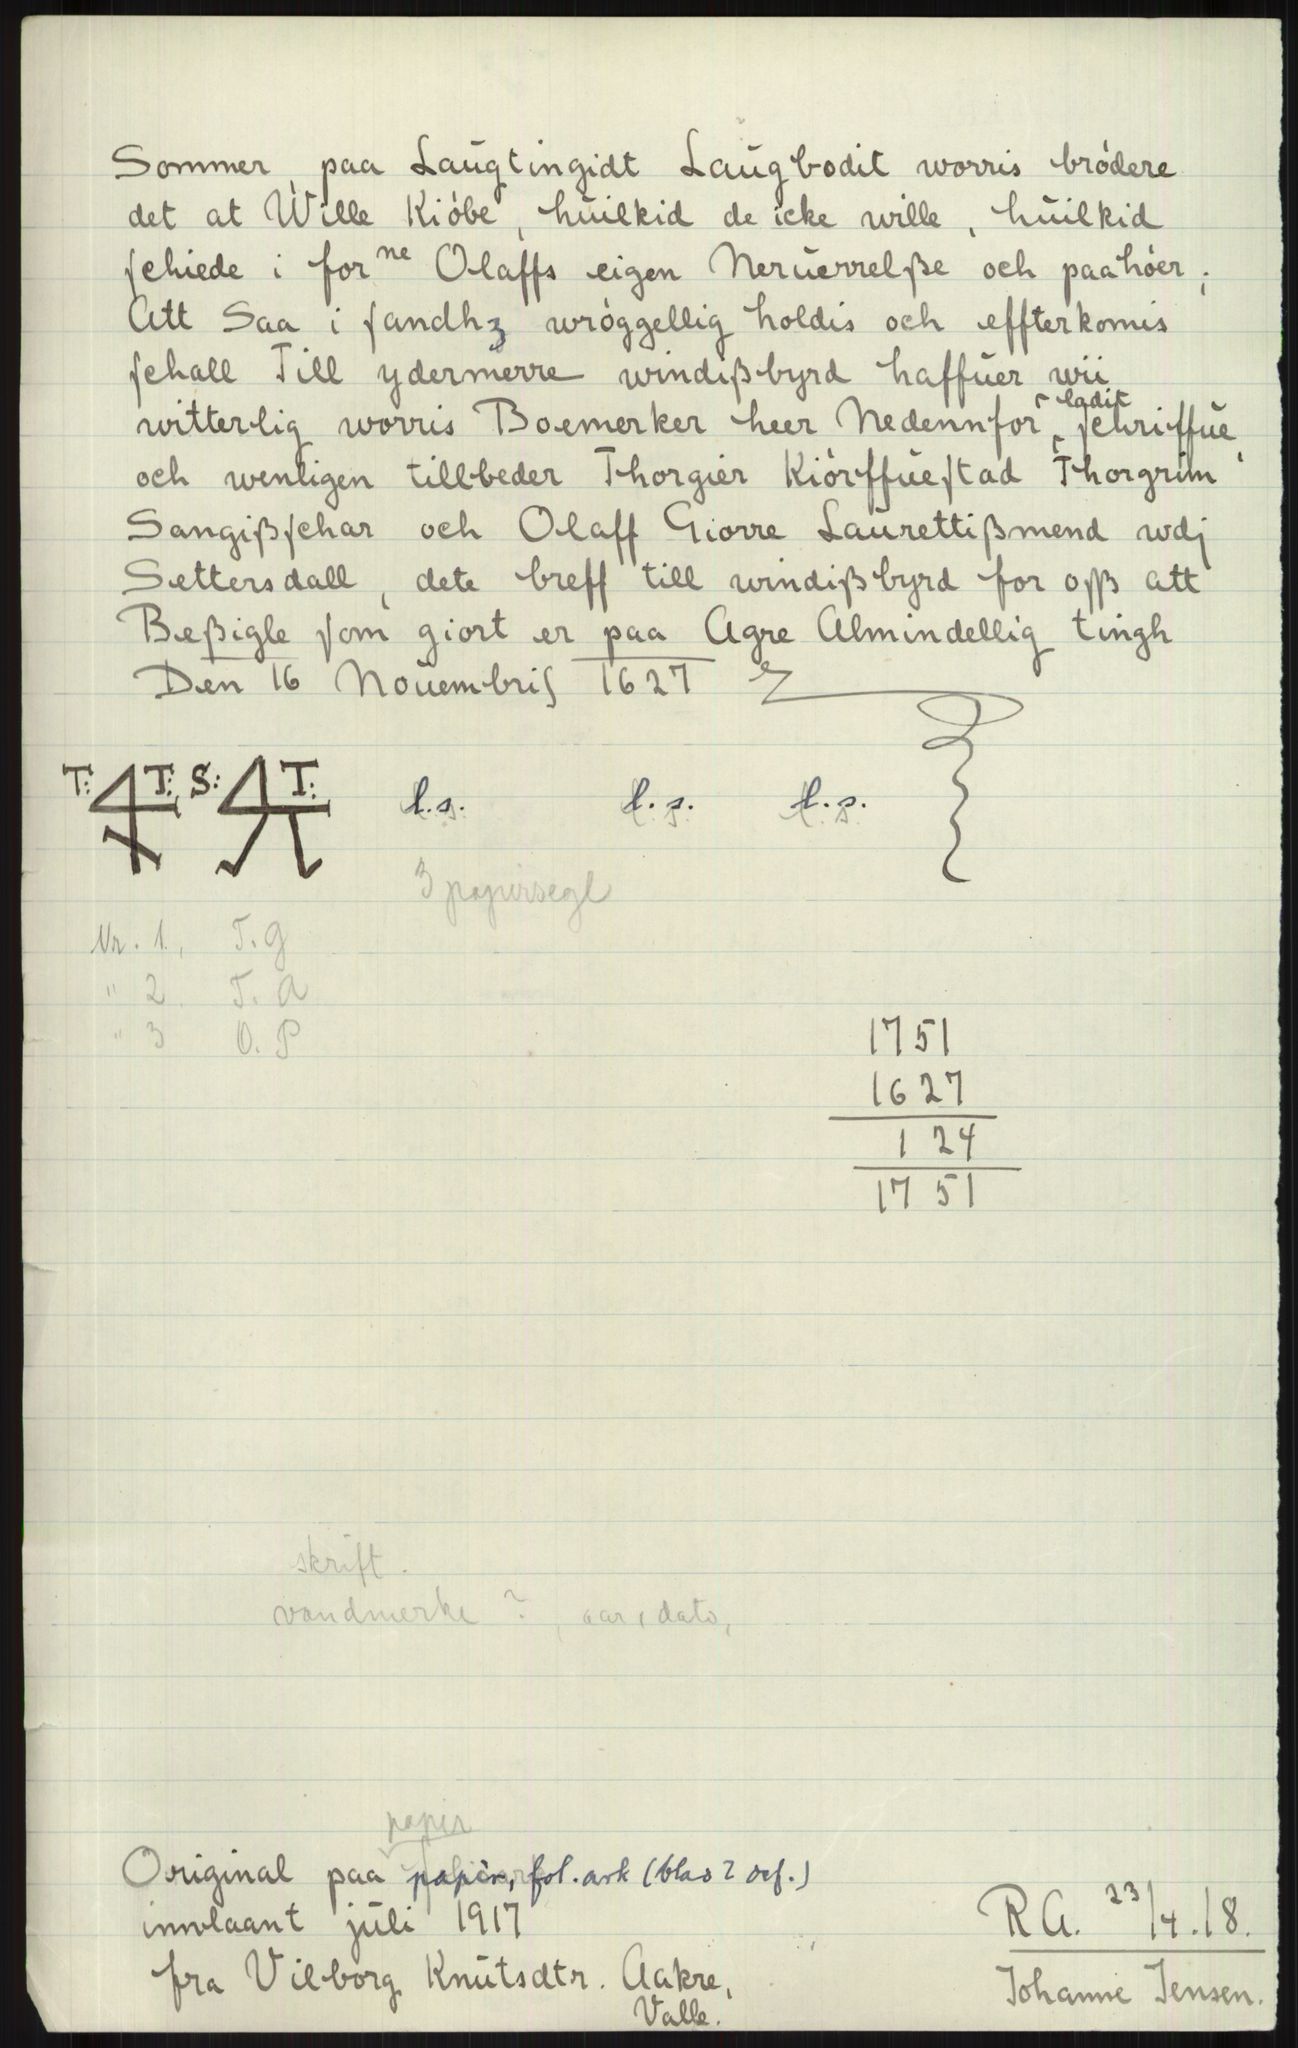 Sommer, paa Laugtingidt Laugbodit worris brødere
det at Wille Kiøbe, huilkid de icke wille, huilkid
schiede i for ne Olaffs eigen Neruerrelße och paahøer;
Att Saa i sandhz wrøggellig holdis och effterkomis
schall Till ydermerre windißbyrd haffuer wii
witterlig worris Boemerker heer Nedennfor ladit schriffue,
och wenligen tillbeder Thorgier Kiørffuestad Thorgrim
Sangißschar och Olaff Giorre Laurettißmend wdj
Settersdall, dete breff till windißbyrd for oss att
Beßigle som giort er paa Agre Almindellig tingh
Den 16 Nouembris 1627
T: T: S: T: l.s. l.s. l.s.
3 papirsegl
Nr. 1. T.G
" 2. T. A
" 3 O. P
1751
1627
124
1751
skrift.
vandmerke ? aar, dato,
papir
Original paa papir, fol. ark (blad 2 def.)
innlaant juli 1917
fra Vilborg Knutsdtr. Aakre,
Valle.
R A. 23/4.18.
Johanne Jensen.